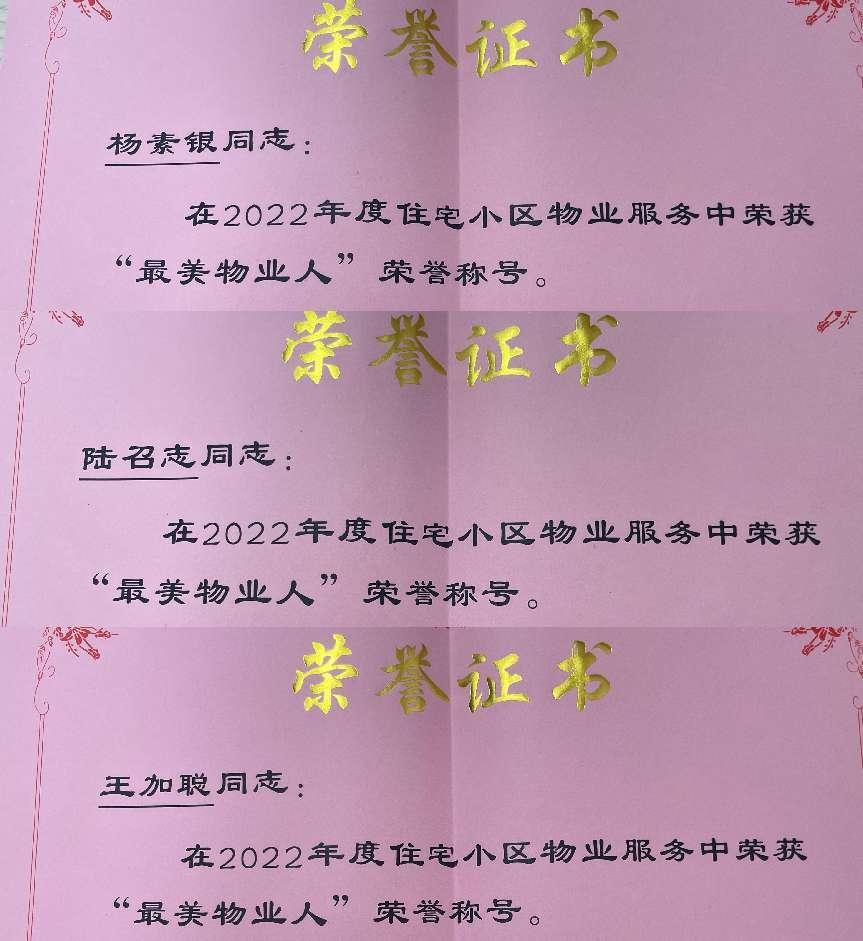 荣誉证书
杨素银同志：
在2022年度住宅小区物业服务中荣获
“最美物业人”荣誉称号。
荣誉证书
陆召志同志：
在2022年度住宅小区物业服务中荣获
“最美物业人”荣誉称号。
荣誉证书
王加聪同志：
在2022年度住宅小区物业服务中荣获
“最美物业人”荣誉称号。